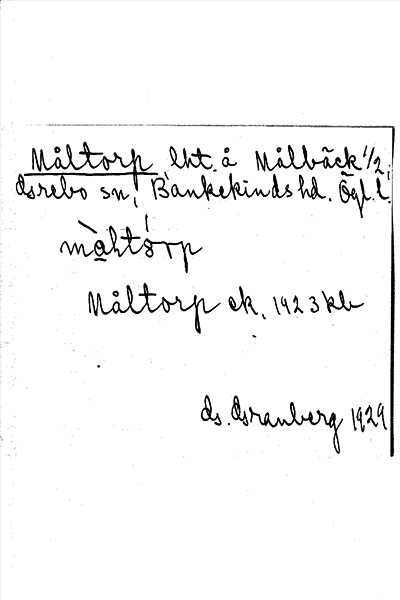 Måltorp lht. å Målbäck 1/2,
Grebo sn, Bankekinds hd. Ögl. l.
Måltorp ek. 1923 kb
G. Granberg 1929